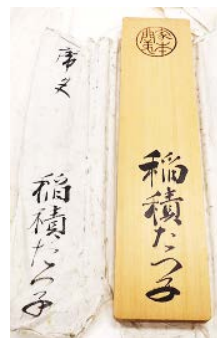 稲積たつ子
稲積たつ子